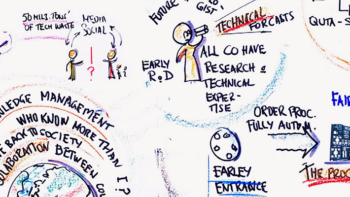 FUTURE
GIST
TECHNICAL
FORCASTS
50 MILL. TONS
OF TECH WASTE
MEDIA
SOCIAL
!
?
EARLY
R&D
ALL CO HAVE
RESEARCH &
TECHNICAL
EXPER-
TISE
QUTA-S
KNOWLEDGE MANAGEMENT
WHO KNOW MORE THAN I?
BACK TO SOCIETY
COLLABORATION BETWEEN
ORDER PROC.
FULLY AUTOM.
EARLEY
ENTRANCE
FAI
THE PROC